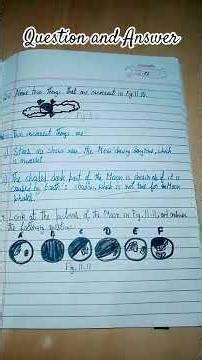 Question and Answer
Name two things that are incorrect in Fig. 11.10.
Two incorrect things are
Stars are shown near the Moon during daytime, which
is incorrect.
The shaded dark part of the Moon is shown as if it is
caused by Earth's shadow, which is not true for the Moon
phases.
Look at the pictures of the Moon in Fig. 11.11, and answer
the following questions.
A B C D E F
Fig. 11.11